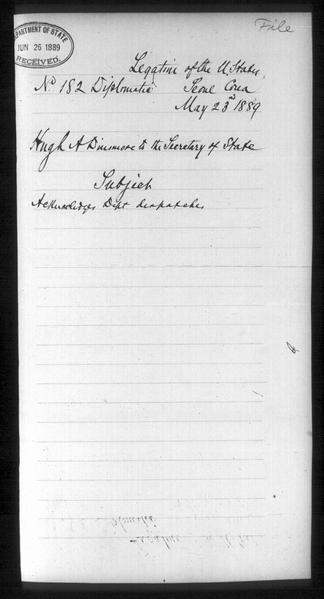 File
DEPARTMENT OF STATE
JUN 26 1889
RECEIVED.
Legation of the U. States,
No 182 Diplomatic Seoul Corea
May 23d 1889
Hugh A Dinsmore to the Secretary of State
Subject
Acknowledges Dept despatches